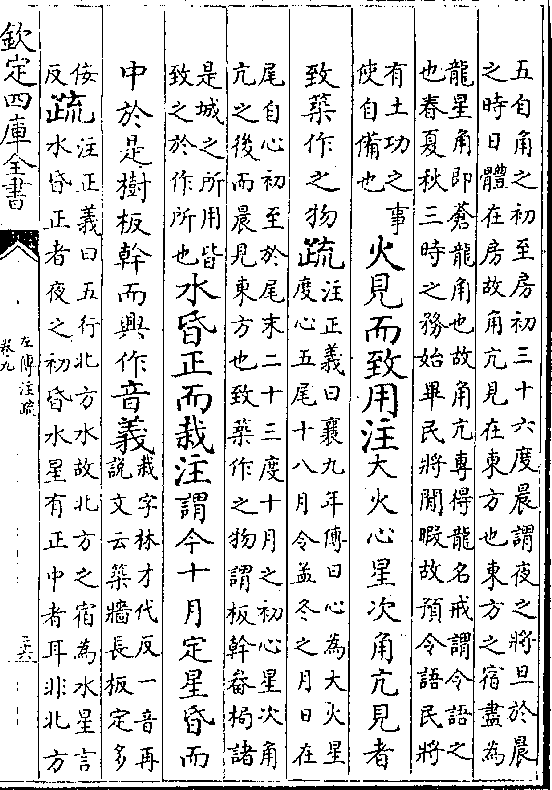 五自角之初至房初三十六度晨謂夜之將旦於晨
之時日體在房故角亢見在東方也東方之宿盡為
龍星角即蒼龍角也故角亢專得龍名戒謂令語之
也春夏秋三時之務始畢民將閒暇故預令語民將
有土功之事
使自備也
火見而致用注大火心星次角亢見者
致築作之物疏
注正義曰襄九年傳曰心為大火星
度心五尾十八月令孟冬之月日在
尾自心初至於尾末二十三度十月之初心星次角
亢之後而晨見東方也致築作之物謂板幹畚梮諸
是城之所用皆
致之於作所也
水昏正而栽注謂今十月定星昏而
中於是樹板幹而興作音義
栽字林才代反一音再
說文云築牆長板定多
佞
反
疏
注正義曰五行北方水故北方之宿為水星言
水昏正者夜之初昏水星有正中者耳非北方
欽定四庫全書
左傳注疏
卷九
三六